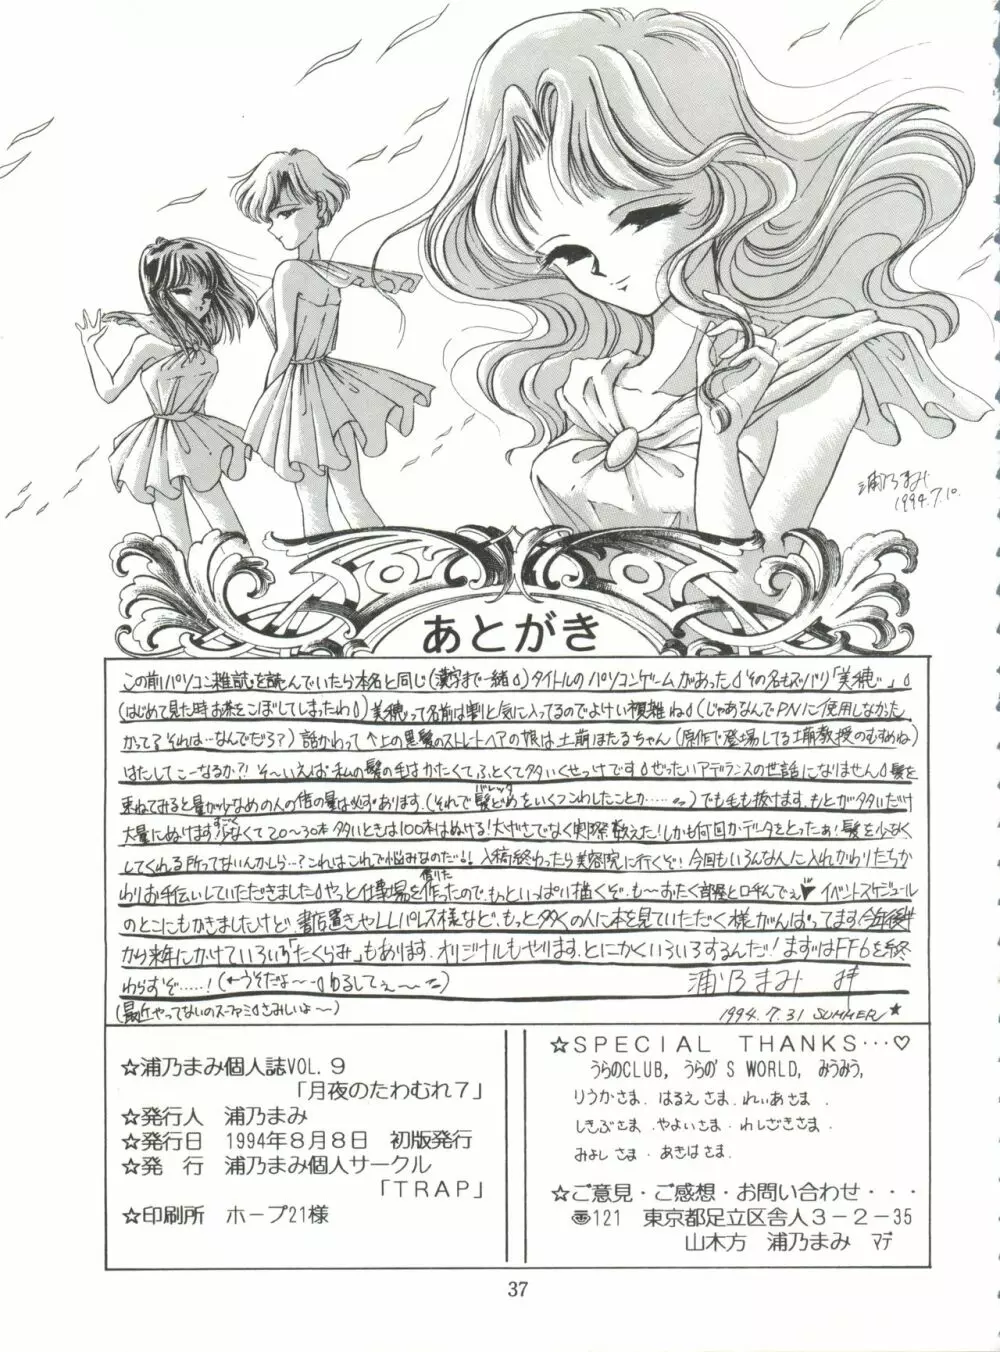 浦乃まみ
1994.7.10.
あとがき
この前パソコン雑誌を読んでいたら本名と同じ(漢字まで一緒)タイトルのパソコンゲームがあった その名もズバリ「美穂」
(はじめて見た時お茶をこぼしてしまったわ)美穂って名前は割と気に入ってるのでよけい複雑ね(じゃあなんでPNに使用しなかった
かって?それは…なんでだろ?)話かわって↑上の黒髪のストレートヘアの娘は土萠ほたるちゃん(原作で登場してる土萠教授のむすめね)
はたしてこーなるか?!そ〜いえば私の髪の毛はかたくてふとくて多いくせっけです ぜったいアデランスの世話になりません 髪を
束ねてみると量が少なめの人の倍の量は必ずあります。(それで髪どめをいくつこわしたことか……)でも毛も抜けます。もとが多いだけ
バレッタ
大量にぬけます すごく少なくて20〜30本 多いときは100本はぬける!大げさでなく実際数えた!しかも何回かデータをとったぁ!髪を少なく
してくれる所ってないんかしら…?これはこれで悩みなのだ!!入稿終わったら美容院に行くぞ!今回もいろんな人に入れかわりたちか
わりお手伝いしていただきました やっと仕事場を作ったので、もっといっぱい描くぞ。も〜おたく部屋と呼んでぇ♥イベントスケジュール
借りた
のとこにもかきましたけど、書店置きやLLパレス様など、もっと多くの人に本を見ていただく様がんばってます 今年後半
から来年にかけていろいろ「たくらみ」もあります。オリジナルもやります。とにかくいろいろするんだ!まずはFF6を終
わらすぞ……!(←うそだよ〜 ゆるしてぇ〜)
浦乃まみ
(最近やってないのスーファミ さみしいよ〜)
1994.7.31 SUMMER★
☆浦乃まみ個人誌VOL.9
「月夜のたわむれ7」
☆発行人 浦乃まみ
☆発行日 1994年8月8日 初版発行
☆発 行 浦乃まみ個人サークル
「TRAP」
☆印刷所 ホープ21様
☆SPECIAL THANKS…♡
うらのCLUB, うらの'S WORLD, みうみう,
りうかさま. はるえさま. れいあさま.
しきぶさま. やよいさま. わしざきさま.
みよしさま. あきはさま.
☆ご意見・ご感想・お問い合わせ・・・
〠121 東京都足立区舎人3-2-35
山木方 浦乃まみ マデ
37